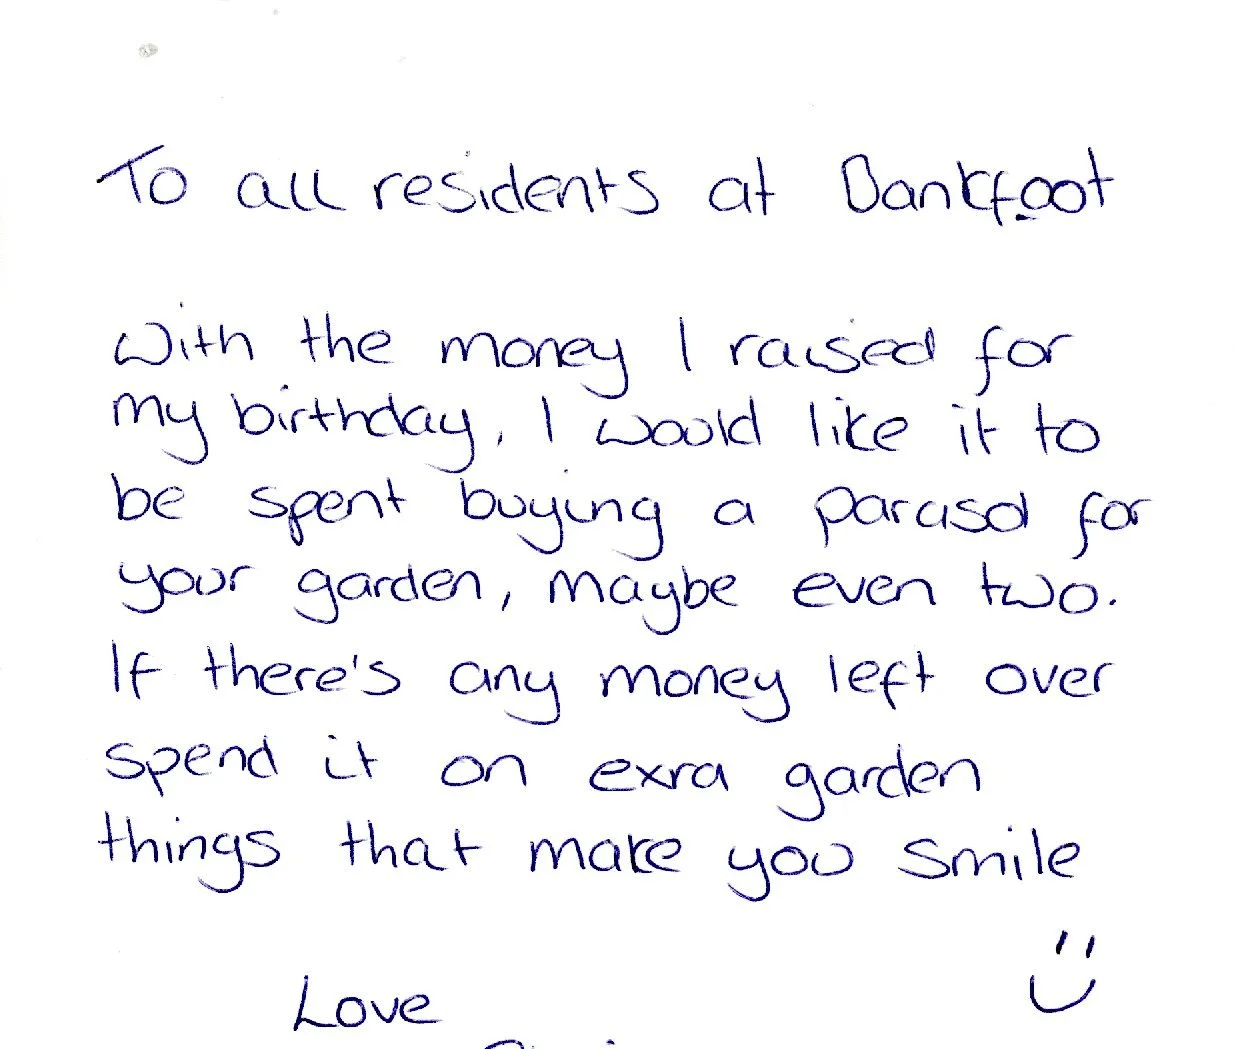 To all residents at Bankfoot
With the money I raised for
my birthday, I would like it to
be spent buying a parasol for
your garden, maybe even two.
If there's any money left over
spend it on exra garden
things that make you smile
Love